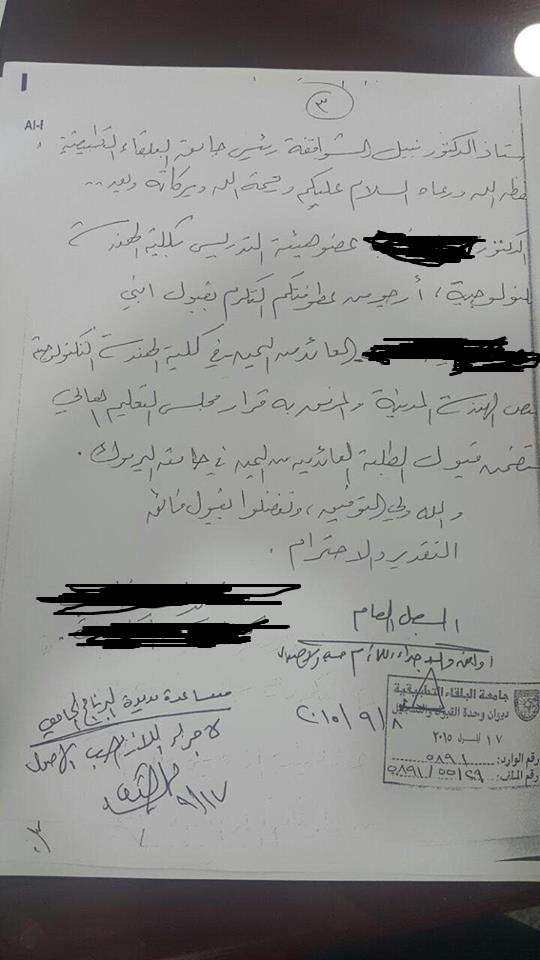 ٣
Al-I
ستاذ الدكتور نبيل الشواقفة رئيس جامعة البلقاء التطبيقية
حفظه الله ورعاه السلام عليكم ورحمة الله وبركاته وبعد ..
الدكتور عضو هيئة التدريس بكلية الهندسة
التكنولوجية، أرجو من عطوفتكم التكرم بقبول ابني
العائد من اليمن في كلية الهندسة التكنولوجية
الهندسة المدنية والمرفق به قرار مجلس التعليم العالي
يتضمن قبول الطلبة العائدين من اليمن في جامعة اليرموك .
والله ولي التوفيق، وتفضلوا بقبول فائق
التقدير والاحترام .
المسجل العام
اجراء اللازم حسب الاصول
٢٠١٥/٩/٨
جامعة البلقاء التطبيقية
ديوان وحدة القبول والتسجيل
١٧ ايلول ٢٠١٥
رقم الوارد: ٥٨٩١
رقم الملف:
مساعدة مديرة البرنامج الجامعي
لاجراء اللازم حسب الاصول
٩/١٧